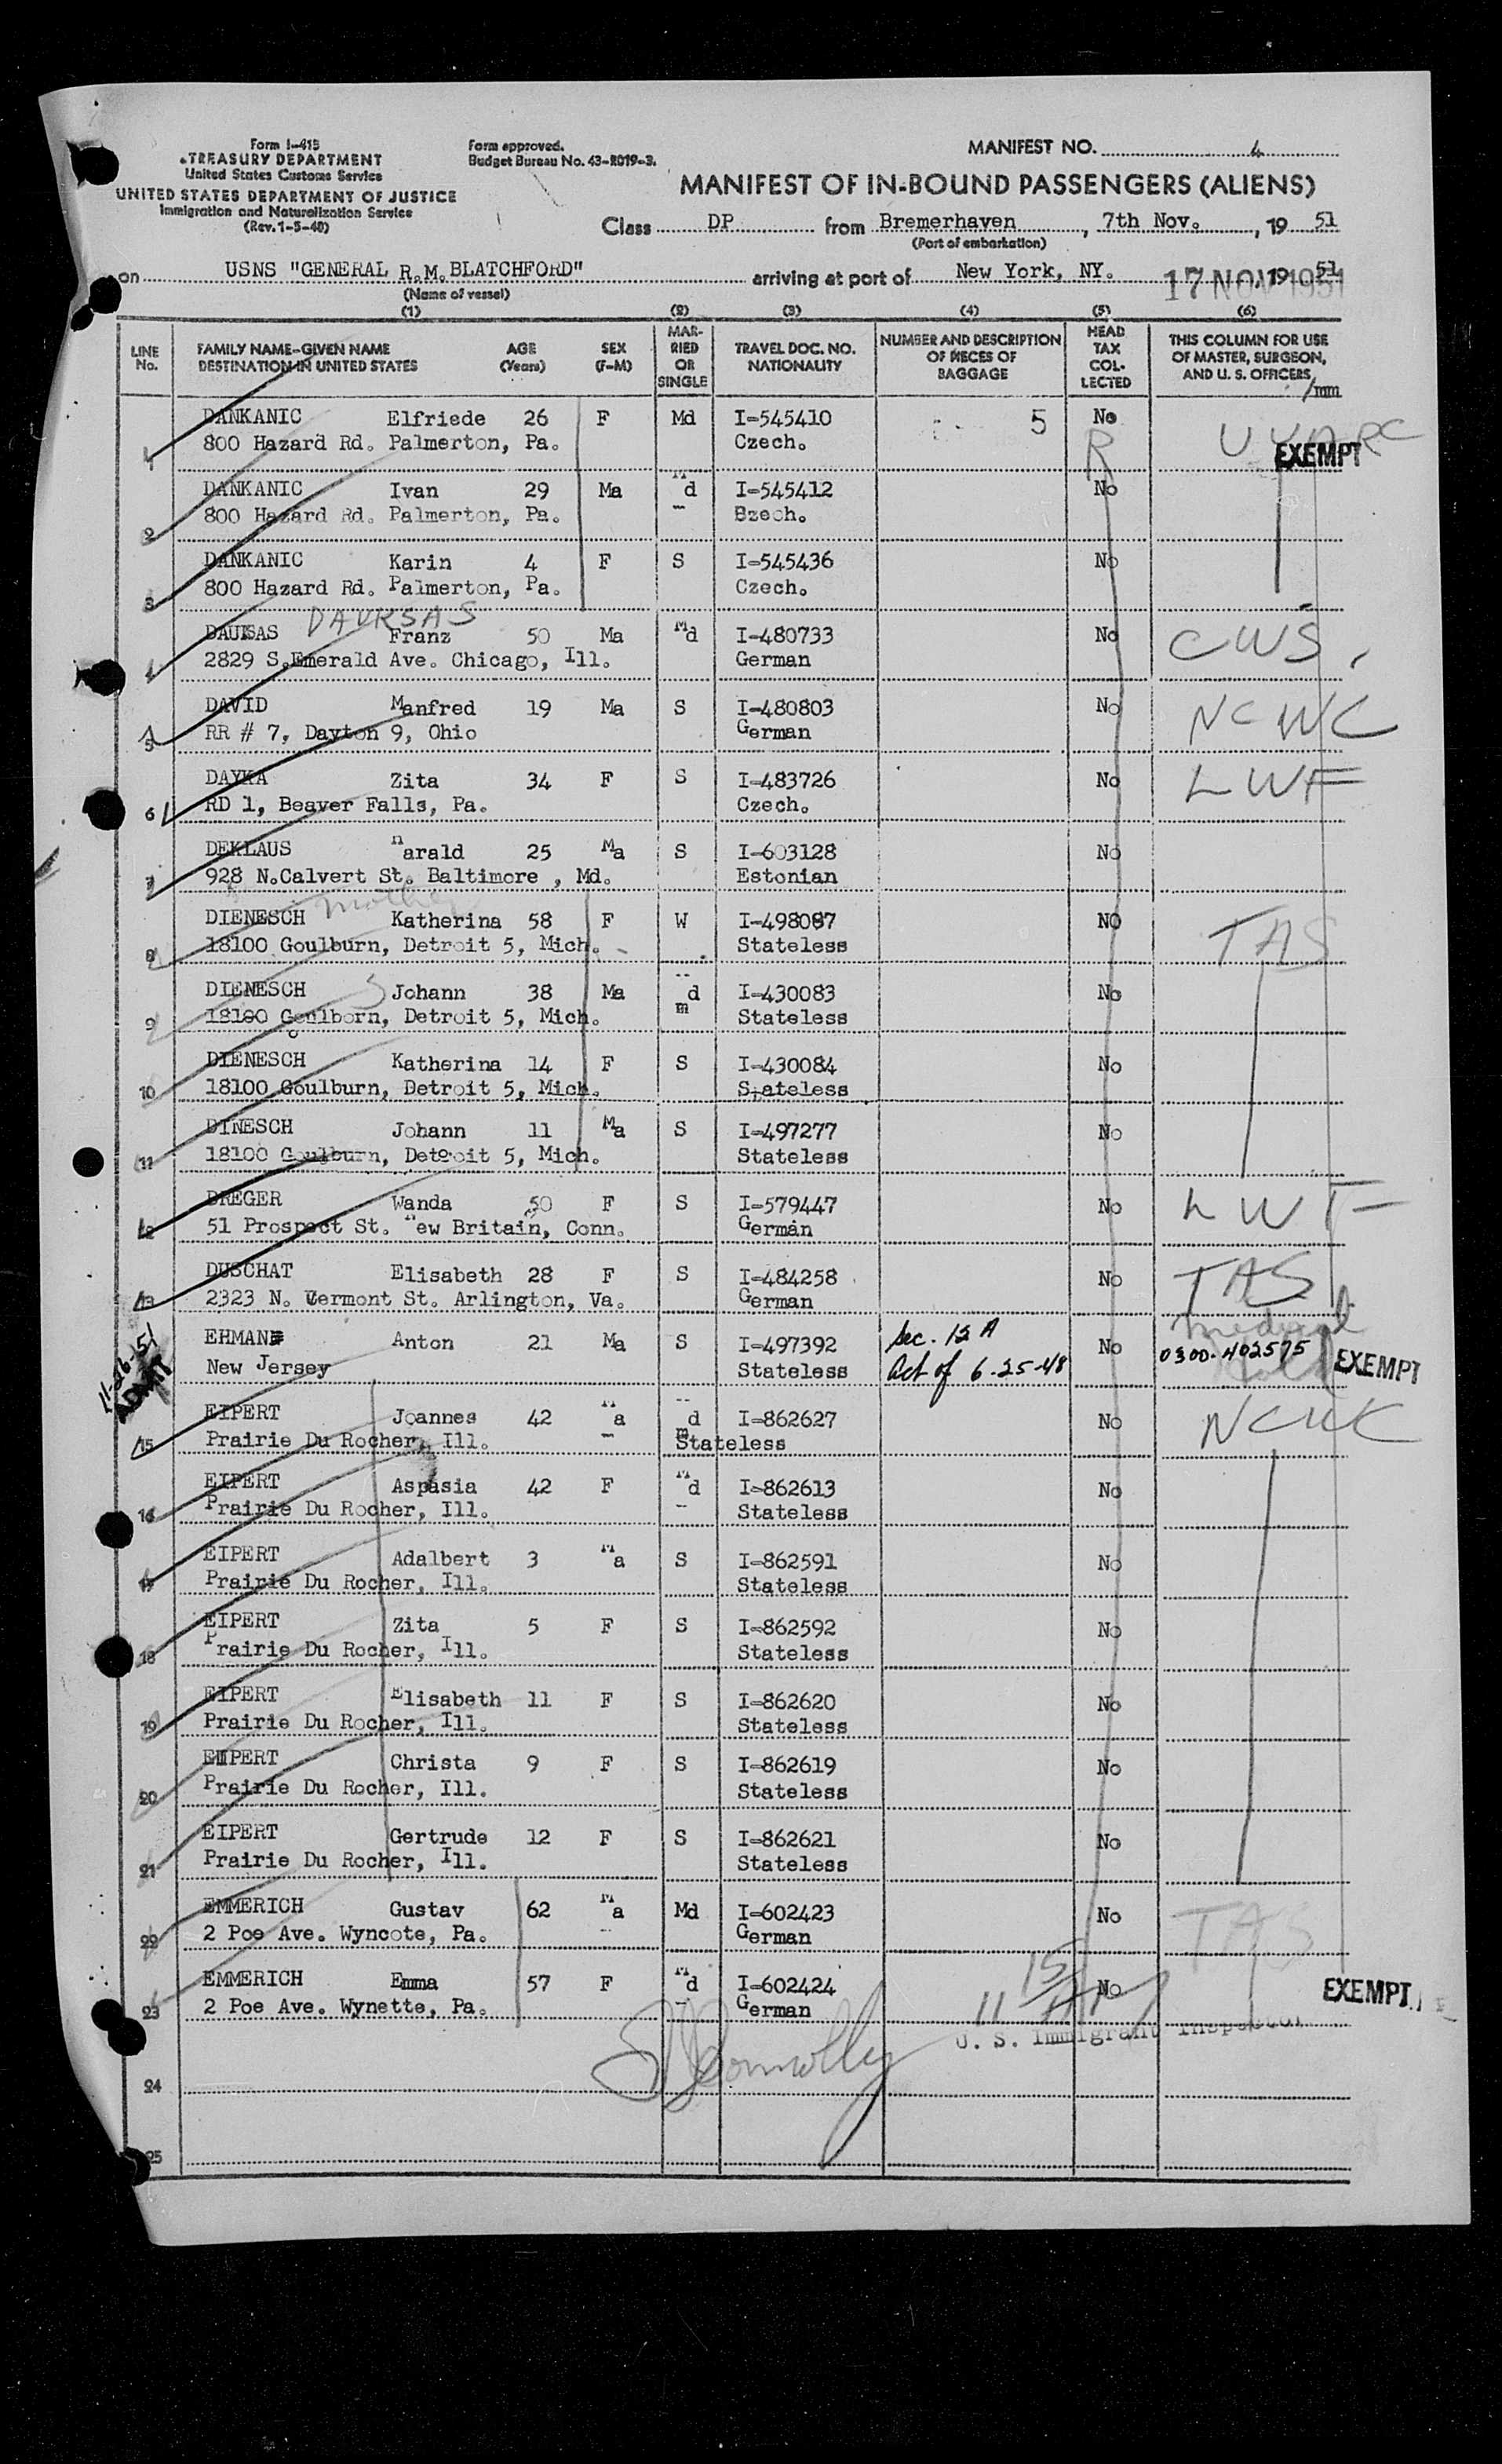 Form I-415
TREASURY DEPARTMENT
United States Customs Service
UNITED STATES DEPARTMENT OF JUSTICE
Immigration and Naturalization Service
(Rev. 1-5-48)
Form approved.
Budget Bureau No. 43-R019-3.
MANIFEST NO. 4
MANIFEST OF IN-BOUND PASSENGERS (ALIENS)
Class DP from Bremerhaven, 7th Nov., 19 51
(Port of embarkation)
on USNS "GENERAL R.M. BLATCHFORD" arriving at port of New York, NY. 17 NOV 1951 19 51
(Name of vessel)
(1) (2) (3) (4) (5) (6)
LINE No. FAMILY NAME-GIVEN NAME DESTINATION IN UNITED STATES AGE (Years) SEX (F-M) MARRIED OR SINGLE TRAVEL DOC. NO. NATIONALITY NUMBER AND DESCRIPTION OF PIECES OF BAGGAGE HEAD TAX COLLECTED THIS COLUMN FOR USE OF MASTER, SURGEON, AND U. S. OFFICERS
/mm
DANKANIC Elfriede 26 F Md I-545410 5 No
1 800 Hazard Rd. Palmerton, Pa. Czech. R EXEMPT
DANKANIC Ivan 29 Ma Md I-545412 No
2 800 Hazard Rd. Palmerton, Pa. Bzech.
DANKANIC Karin 4 F S I-545436 No
3 800 Hazard Rd. Palmerton, Pa. Czech.
DAUKSAS
DAUKSAS Franz 50 Ma Md I-480733 No CWS
4 2829 S.Emerald Ave. Chicago, Ill. German
DAVID Manfred 19 Ma S I-480803 No NCWC
5 RR # 7, Dayton 9, Ohio German
DAYKA Zita 34 F S I-483726 No LWF
6 RD 1, Beaver Falls, Pa. Czech.
DEKLAUS Harald 25 Ma S I-603128 No
7 928 N.Calvert St. Baltimore , Md. Estonian
mother
DIENESCH Katherina 58 F W I-498087 NO TAS
8 18100 Goulburn, Detroit 5, Mich. Stateless
DIENESCH Johann 38 Ma md I-430083 No
9 18100 Goulborn, Detroit 5, Mich. Stateless
DIENESCH Katherina 14 F S I-430084 No
10 18100 Goulburn, Detroit 5, Mich. Stateless
DINESCH Johann 11 Ma S I-497277 No
11 18100 Goulburn, Detroit 5, Mich. Stateless
DREGER Wanda 50 F S I-579447 No LWF
12 51 Prospect St. New Britain, Conn. German
DUSCHAT Elisabeth 28 F S I-484258 No TAS
13 2323 N. Vermont St. Arlington, Va. German
EHMANN Anton 21 Ma S I-497392 Sec. 12 A No medical 0300-402575
11-26-51 ADMIT New Jersey Stateless Act of 6-25-48 EXEMPT
EIPERT Joannes 42 Ma md I-862627 No NCWC
15 Prairie Du Rocher, Ill. Stateless
EIPERT Aspasia 42 F Md I-862613 No
16 Prairie Du Rocher, Ill. Stateless
EIPERT Adalbert 3 Ma S I-862591 No
17 Prairie Du Rocher, Ill. Stateless
EIPERT Zita 5 F S I-862592 No
18 Prairie Du Rocher, Ill. Stateless
EIPERT Elisabeth 11 F S I-862620 No
19 Prairie Du Rocher, Ill. Stateless
EIPERT Christa 9 F S I-862619 No
20 Prairie Du Rocher, Ill. Stateless
EIPERT Gertrude 12 F S I-862621 No
21 Prairie Du Rocher, Ill. Stateless
EMMERICH Gustav 62 Ma Md I-602423 No TAS
22 2 Poe Ave. Wyncote, Pa. German
EMMERICH Emma 57 F Md I-602424 No EXEMPT
23 2 Poe Ave. Wynette, Pa. German
U. S. Immigrant Inspector
24
25